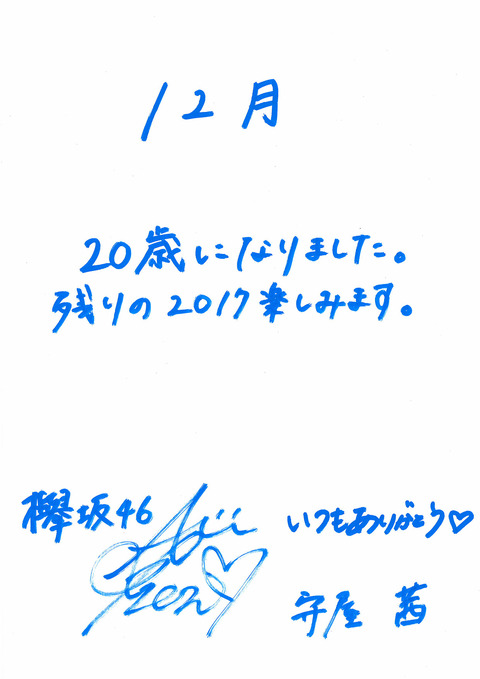 12月
20歳になりました。
残りの2017楽しみます。
欅坂46
いつもありがとう♡
守屋 茜